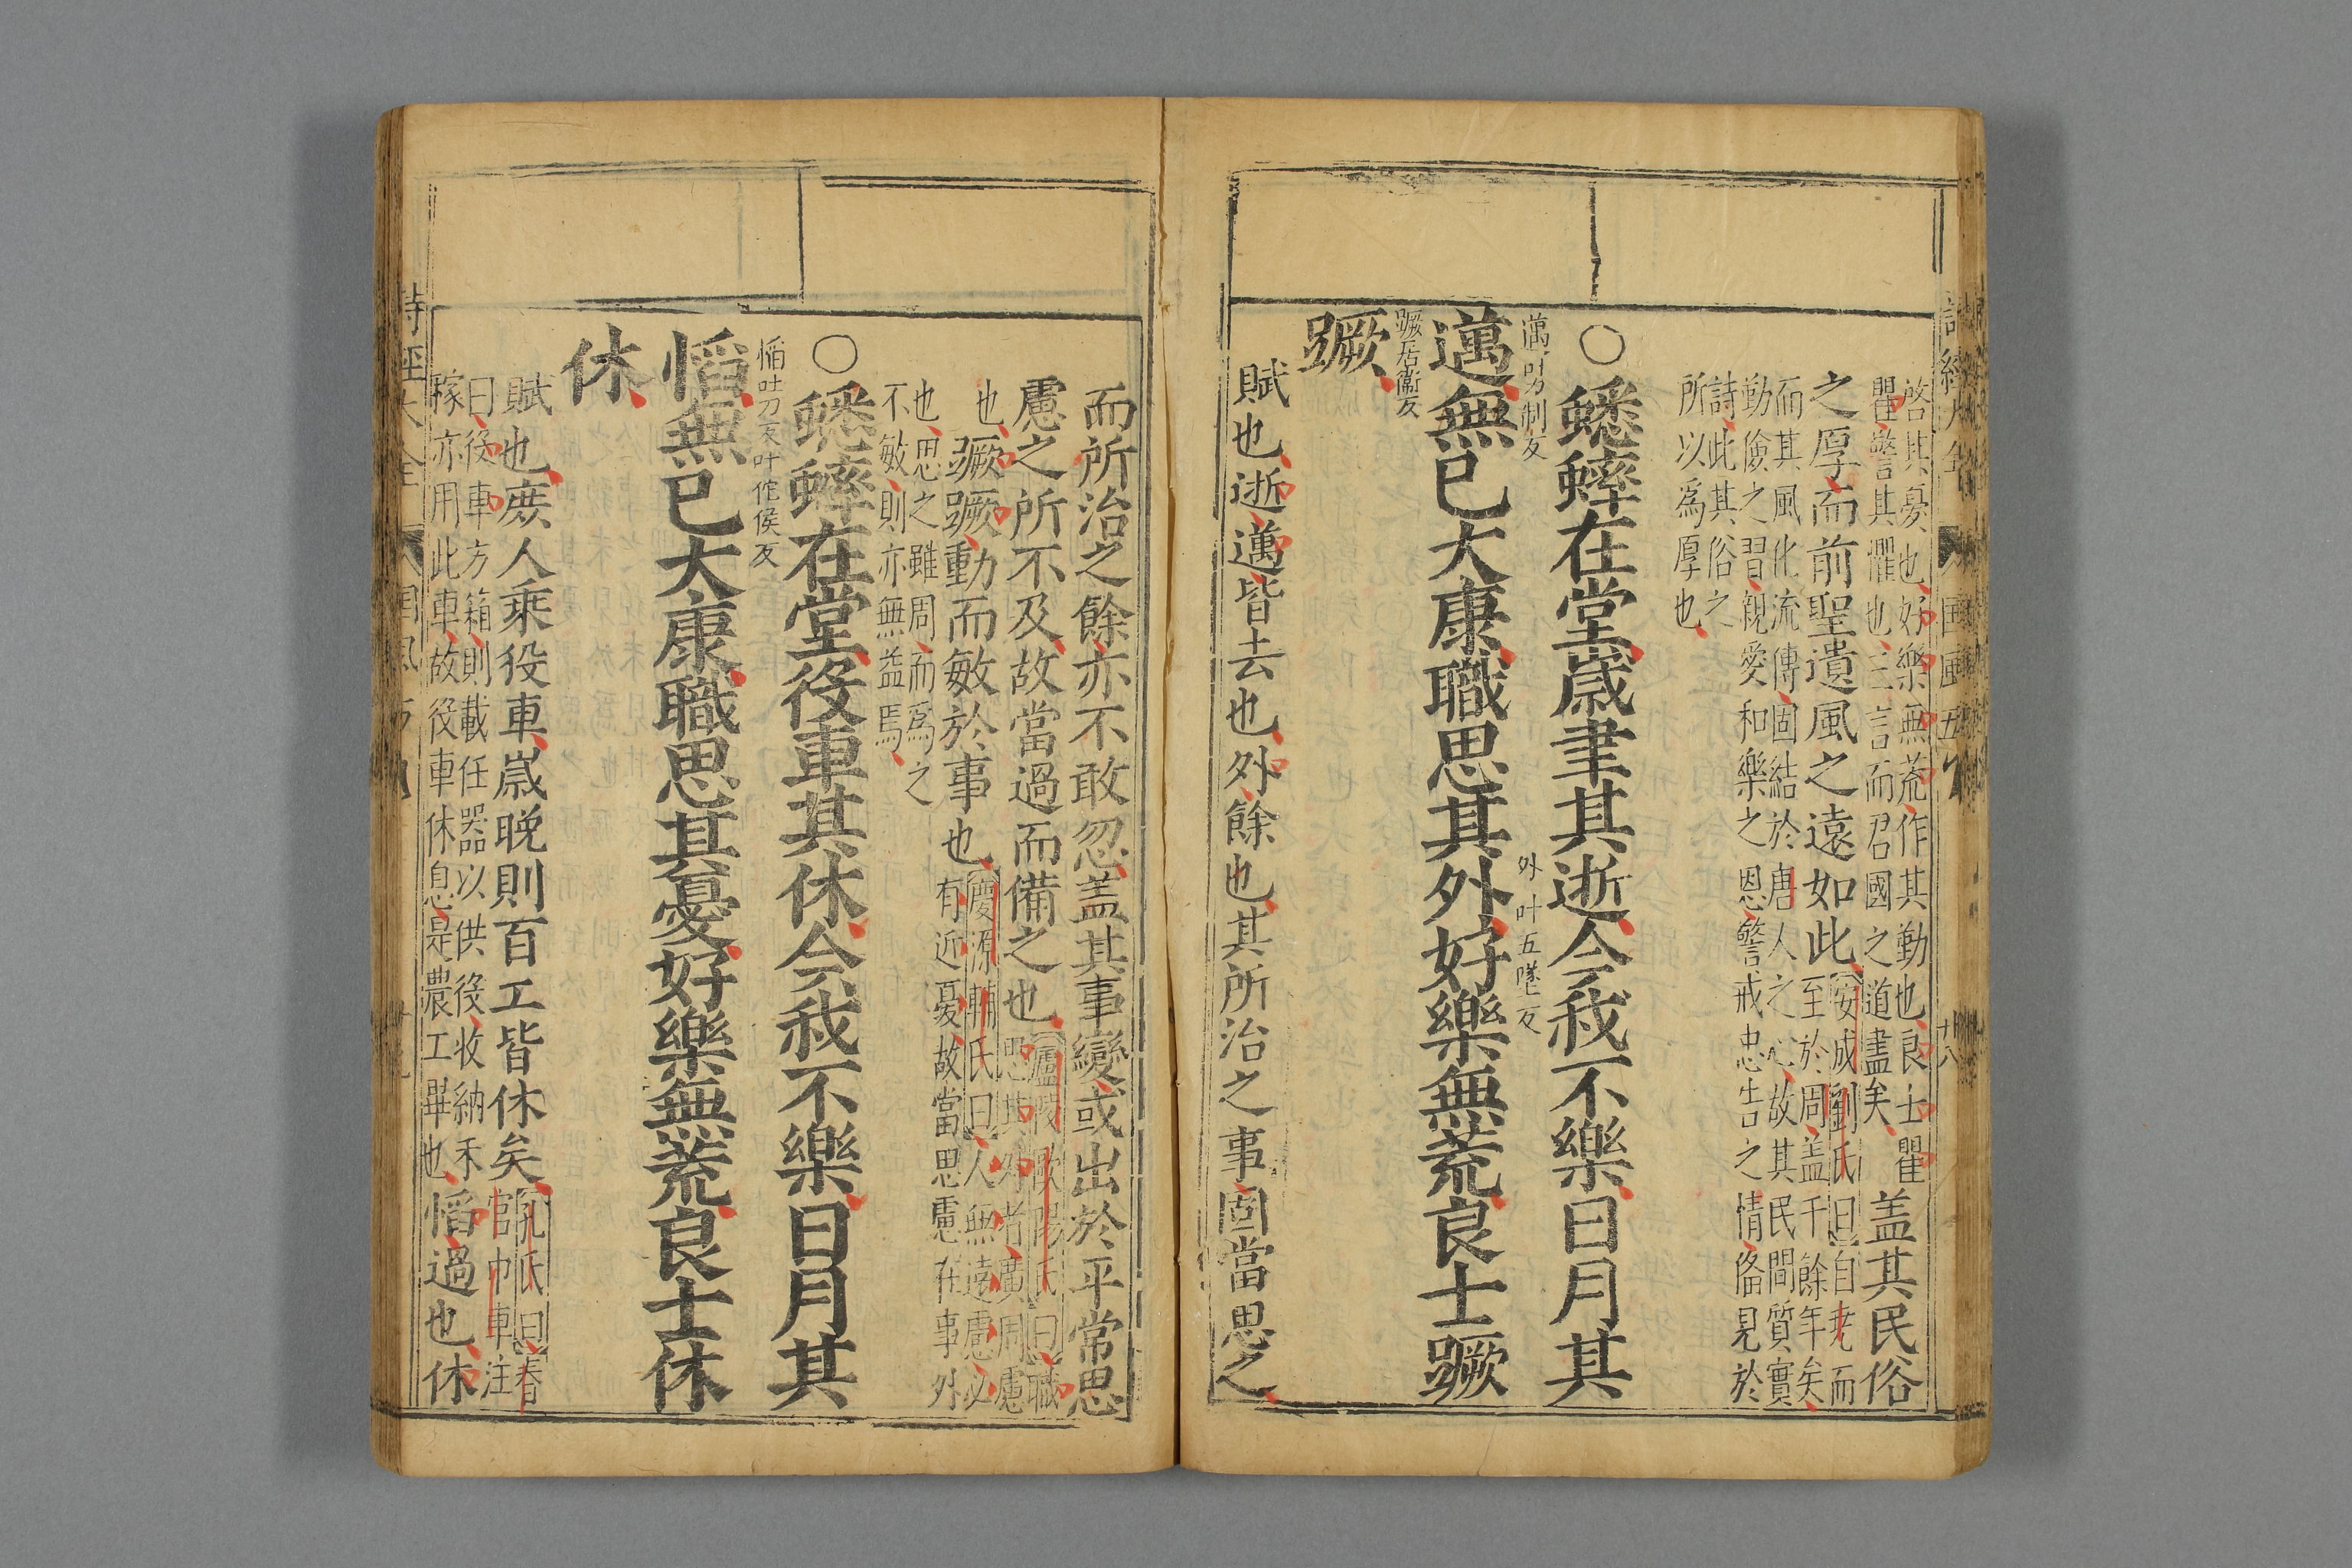 詩經大全 國風五 十八
啓其憂也好樂無荒作其勤也良士瞿
瞿警其懼也三言而君國之道盡矣
蓋其民俗
之厚而前聖遺風之遠如此
安成劉氏曰自堯而
至於周蓋千餘年矣
而其風化流傳固結於唐人之心故其民間質實
勤儉之習親愛和樂之恩警戒忠告之情備見於
詩此其俗之
所以爲厚也
○蟋蟀在堂歲聿其逝今我不樂日月其
邁叶力制反
外叶五墜反
邁無已大康職思其外好樂無荒良士蹶
蹶居衛反
蹶
賦也逝邁皆去也外餘也其所治之事固當思之
而所治之餘亦不敢忽蓋其事變或出於平常思
慮之所不及故當過而備之也
廬陵歐陽氏曰職
思其外者廣周慮
也
蹶蹶動而敏於事也
慶源輔氏曰人無遠慮必
有近憂故當思慮在事外
也思之雖周而爲之
不敏則亦無益焉
○蟋蟀在堂役車其休今我不樂日月其
慆吐刀反叶佗侯反
慆無已大康職思其憂好樂無荒良士休
休
賦也庶人乘役車歲晚則百工皆休矣
孔氏曰春
官巾車注
曰役車方箱則載任器以供役收納禾
稼亦用此車故役車休息是農工畢也
慆過也休
詩經大全 國風五